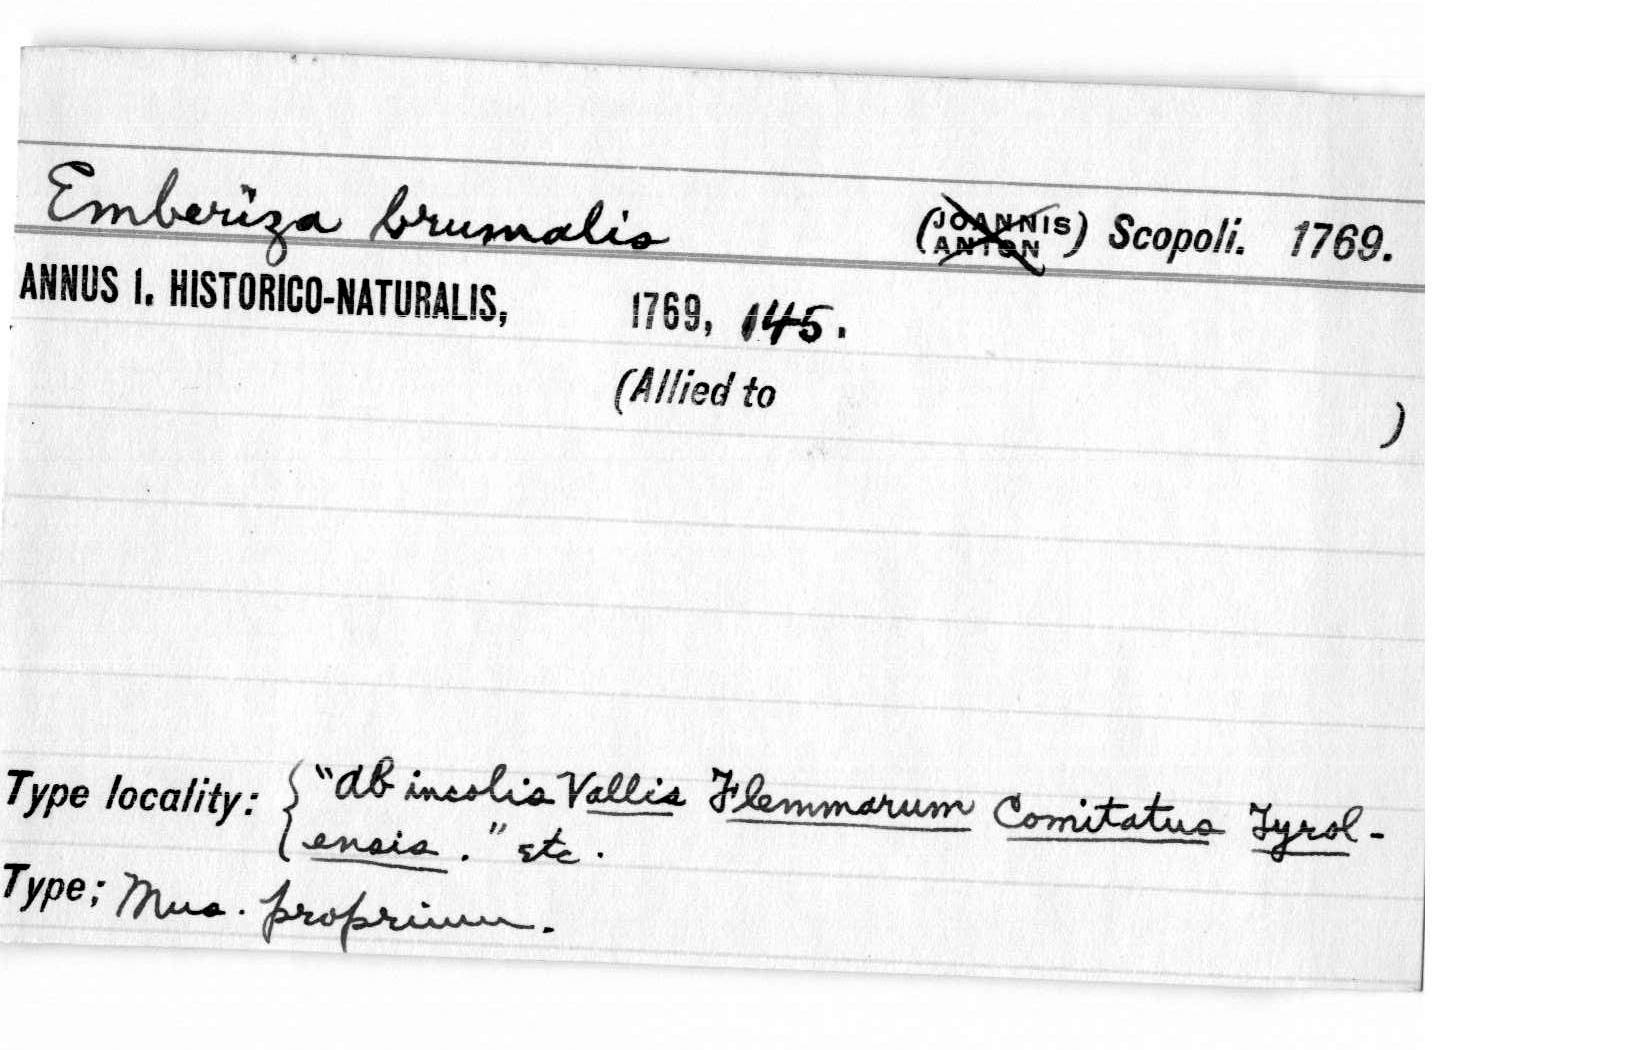 Emberiza brumalis (JOANNIS ANTON) Scopoli. 1769.
ANNUS I. HISTORICO-NATURALIS, 1769, 145.
(Allied to )
Type locality: { "Ab incolis Vallis Flemmarum Comitatus Tyrol-
ensis." etc.
Type; Mus. proprium.